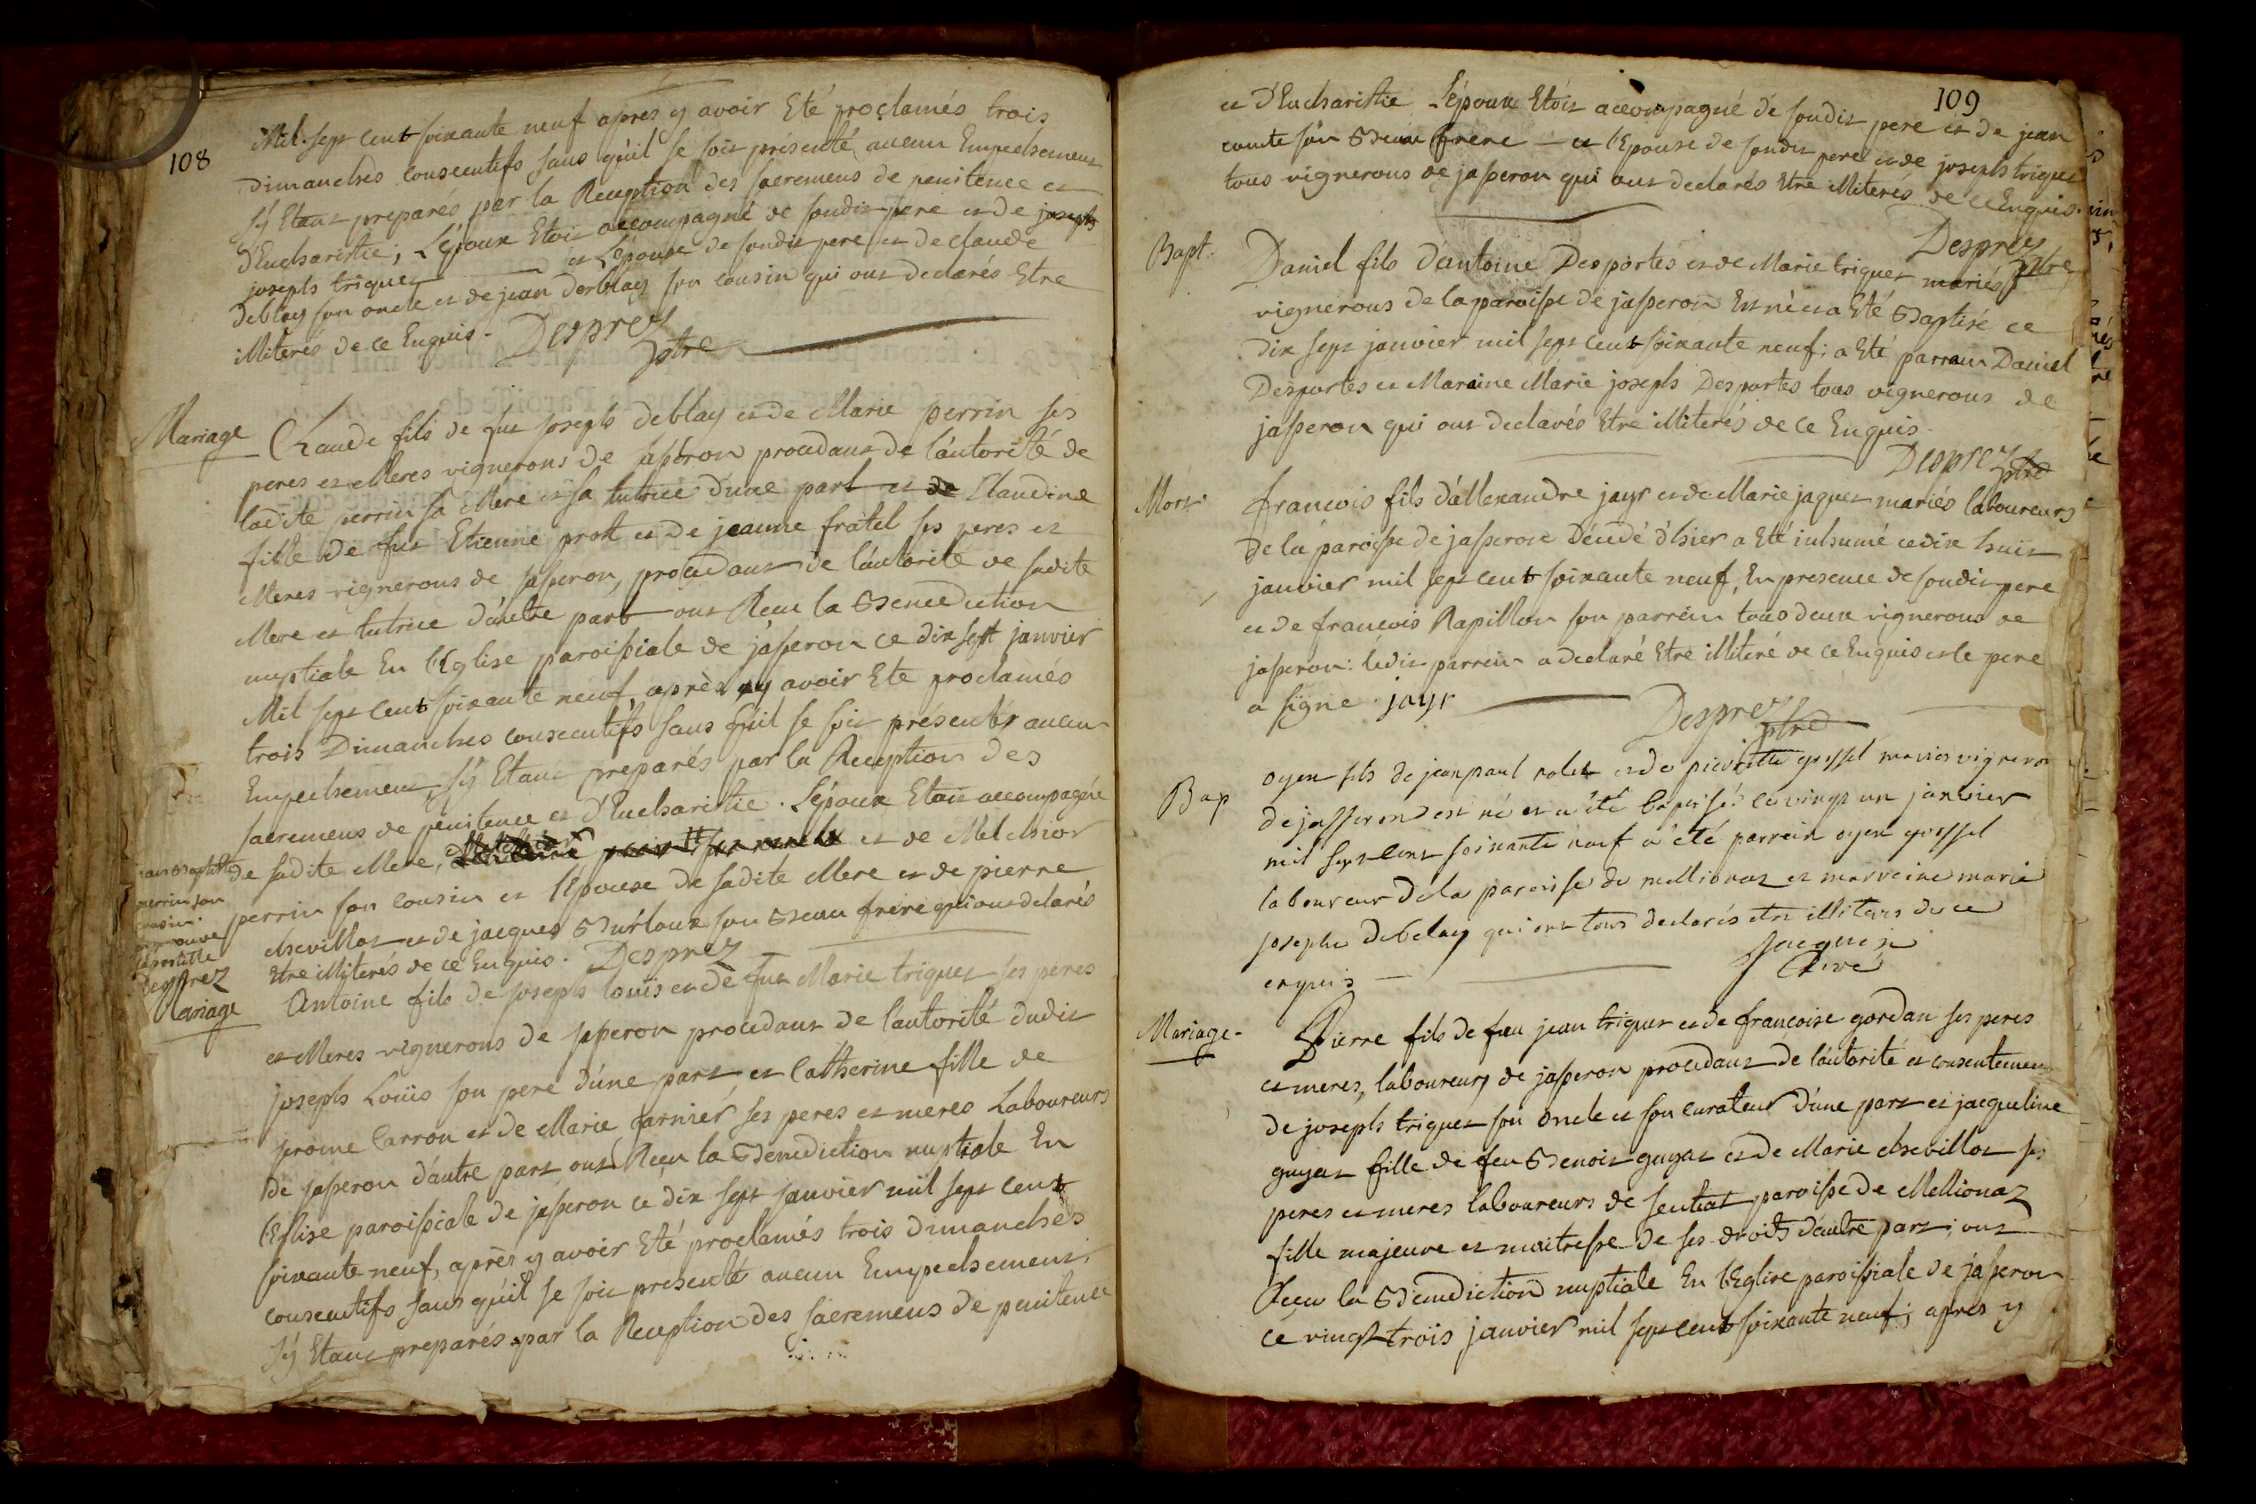 108
Mil sept cent soixante neuf après y avoir Eté proclamés trois
dimanches consecutifs sans qu'il se soit présenté aucun Empechement
s'y Etant preparés par la Reception des sacremens de penitence et
d'Eucharistie; L'époux Etoit accompagné de sondit pere et de joseph
joseph triquet et L'épouse de sondit pere et de claude
deblay son oncle et de jean derblay son cousin qui ont declarés Etre
illiterés de ce Enquis. Desprez
ptre
Mariage
Claude fils de fut joseph deblay et de Marie perrin ses
peres et Meres vignerons de jasseron procedant de l'autorité de
ladite perrin sa Mere et sa tutrice d'une part et de Claudine
fille de fut Etienne prost et de jeanne fratel ses peres et
Meres vignerons de jasseron, procedant de l'autorité de sadite
Mere et tutrice d'autre part ont Recu la Benediction
nuptiale En l'Eglise paroissiale de jasseron ce dix sept janvier
Mil sept cent soixante neuf, après y avoir Eté proclamés
trois Dimanches consecutifs sans qu'il se soit présenté aucun
Empechement, s'y Etant preparés par la Reception des
sacremens de penitence et d'Eucharistie. L'époux Etoit accompagné
de sadite Mere, et de Melchior
perrin son cousin et l'Epouse de sadite Mere et de pierre
chevillot et de jacques Burtoux son Beau frere qui ont declarés
Etre illiterés de ce Enquis. Desprez
perrin son
cousin.
approuvé
Desprez
Mariage
Antoine fils de joseph louis et de fut Marie triquet ses peres
et Meres vignerons de jasseron procedant de l'autorité dudit
joseph Loüis son pere d'une part et Catherine fille de
jerome Carron et de Marie garnier ses peres et meres Laboureurs
de jasseron d'autre part ont Reçu la Benediction nuptiale En
l'Eglise paroissiale de jasseron ce dix sept janvier mil sept cent
soixante neuf, après y avoir Eté proclamés trois dimanches
consecutifs sans qu'il se soit presenté aucun Empechement;
s'y Etant preparés par la Reception des sacremens de penitence
109
et d'Eucharistie L'époux Etoit accompagné de sondit pere et de jean
comte son Beau frere — et l'Epouse de sondit pere et de joseph triquet
tous vignerons de jasseron qui ont declarés Etre illiterés de ce Enquis.
Desprez
ptre
Bapt.
Daniel fils d'antoine Desportes et de Marie triquet mariés
vignerons de la paroisse de jasseron Est né et a Eté Baptisé ce
dix sept janvier mil sept cent soixante neuf; a Eté parrain Daniel
Desportes et Maraine Marie joseph Desportes tous vignerons de
jasseron qui ont declarés Etre illiterés de ce Enquis.
Desprez ptre
Mort.
francois fils d'allexandre jayr et de Marie jaquet mariés laboureurs
de la paroisse de jasseron décédé d'hier a Eté inhumé ce dix huit
janvier mil sept cent soixante neuf, En presence de sondit pere
et de francois Rapillon son parrein tous deux vignerons de
jasseron: ledit parrein a declaré Etre illiteré de ce Enquis et le pere
a signe jayr
Desprez
ptre
Bap
oyen fils de jean paul rolet et de pierrette gossel mariés vigneron
de jasseron est né et a été baptisé ce vingt un janvier
mil sept cent soixante neuf a été parrein oyen gossel
laboureur de la paroisse de mellionaz et marreine marie
josephe debelay qui ont tous declarés etre illiterés de ce
enquis
jacquin
Curé
Mariage
Pierre fils de feu jean triquet et de francoise gordan ses peres
et meres, laboureurs de jasseron procedant de l'autorité et consentement
de joseph triquet son oncle et son curateur d'une part et jacqueline
guyat fille de feu Benoit guyat et de Marie chevillot ses
peres et meres laboureurs de sentiat paroisse de Mellionaz
fille majeure et maitresse de ses droits d'autre part; ont
Reçu la Benediction nuptiale En l'Eglise paroissiale de jasseron
ce vingt trois janvier mil sept cent soixante neuf; après y